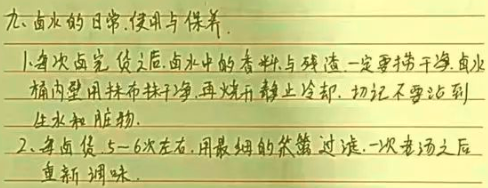 九、卤水的日常使用与保养.
1.每次卤完货之后.卤水中的香料与残渣.一定要捞干净.卤水
桶内壁用抹布抹干净.再烧开静止冷却.切记不要沾到
生水和脏物.
2、每卤货5~6次左右.用最细的筛过滤.一次老汤之后
重新调味.